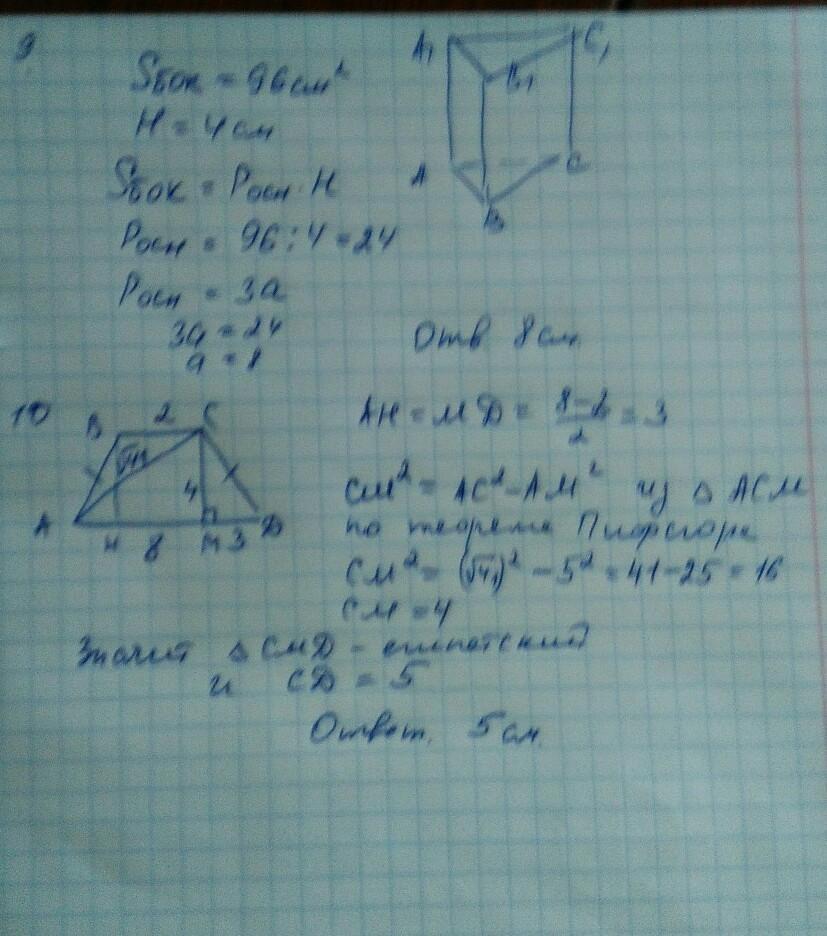 9
Sбок = 96 см²
H = 4 см
Sбок = Pосн · H
Pосн = 96 : 4 = 24
Pосн = 3a
3a = 24
a = 8
Отв 8 см.
A₁ C₁
B₁
A C
B
10
B 2 C
√41
4
A H 8 M 3 D
AH = MD = (8-2)/2 = 3
CM² = AC² - AM² из △ ACM
по теореме Пифагора
CM² = (√41)² - 5² = 41 - 25 = 16
CM = 4
Значит △ CMD - египетский
и CD = 5
Ответ. 5 см.